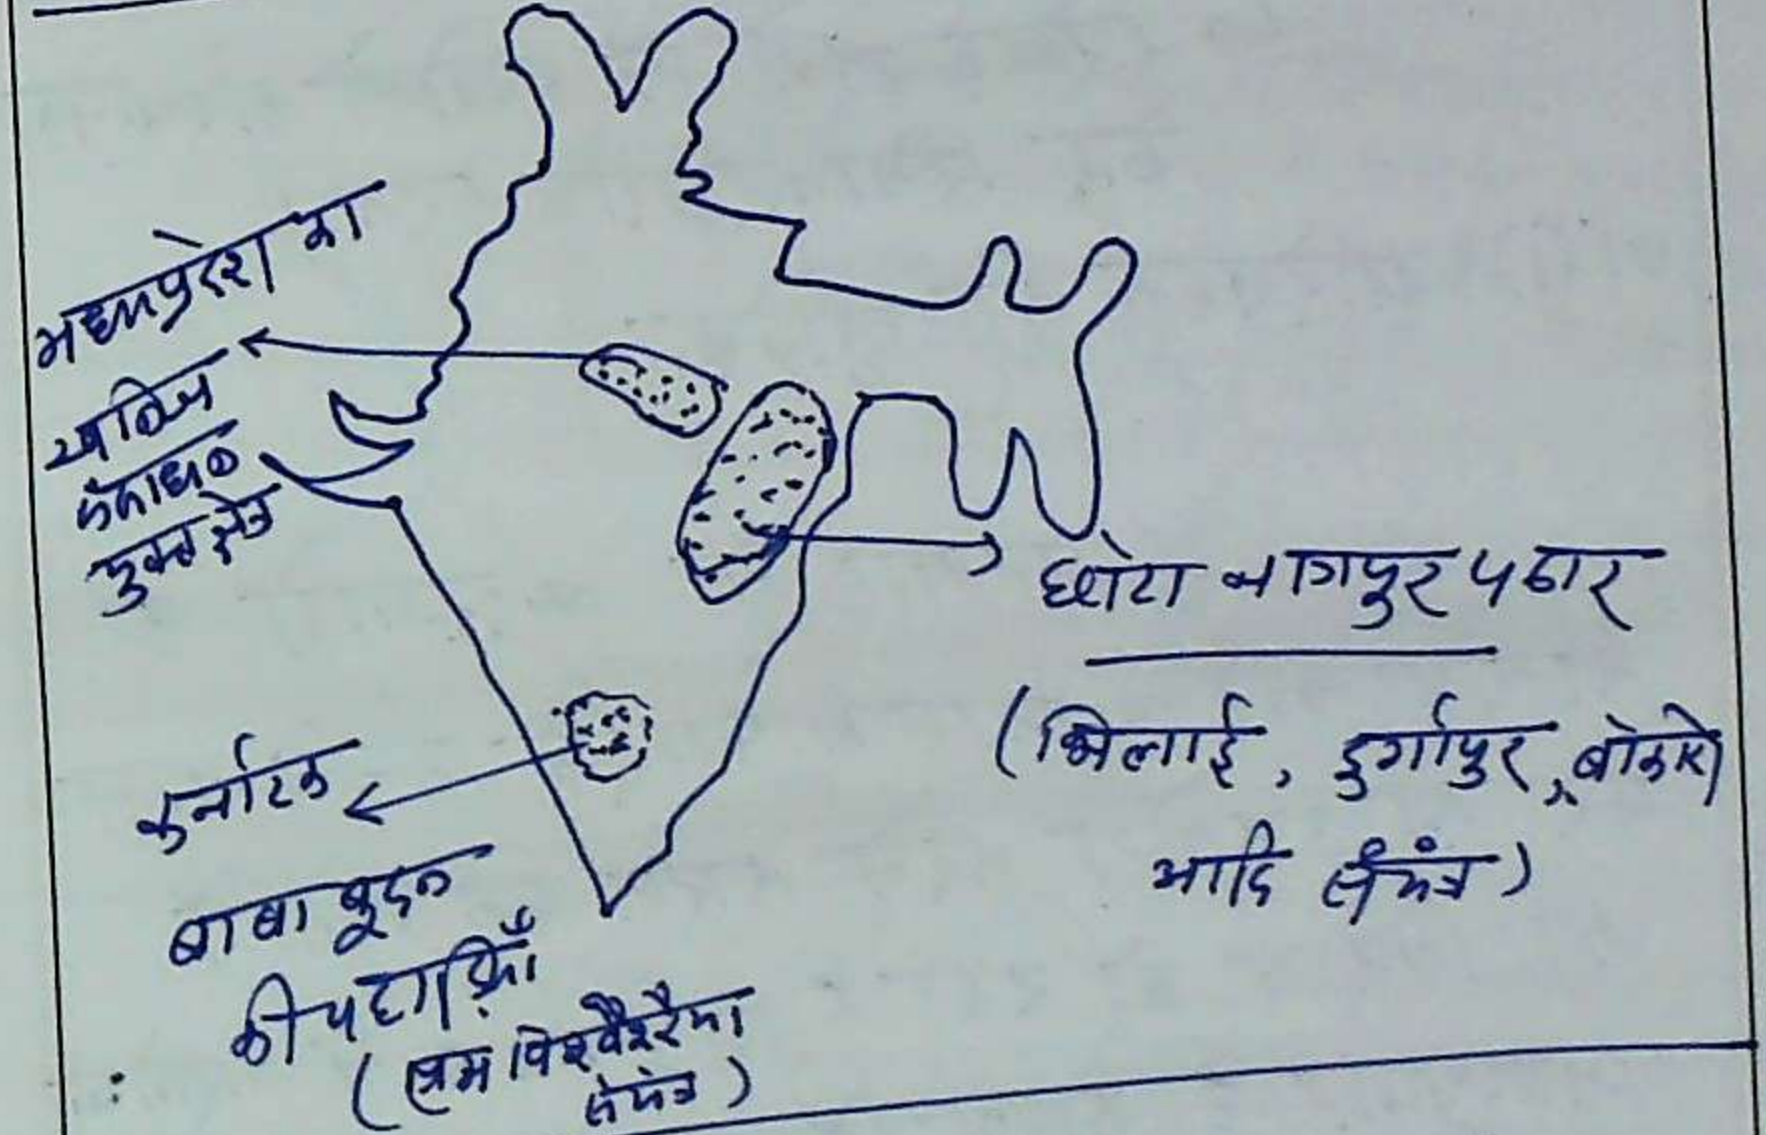 मध्यप्रदेश का
खनिज
संसाधन
युक्त क्षेत्र
छोटा नागपुर पठार
(भिलाई, दुर्गापुर, बोकारो
आदि संयंत्र)
कर्नाटक
बाबा बूदन
की पहाड़ियाँ
(एम विश्वेश्वरैया
संयंत्र)